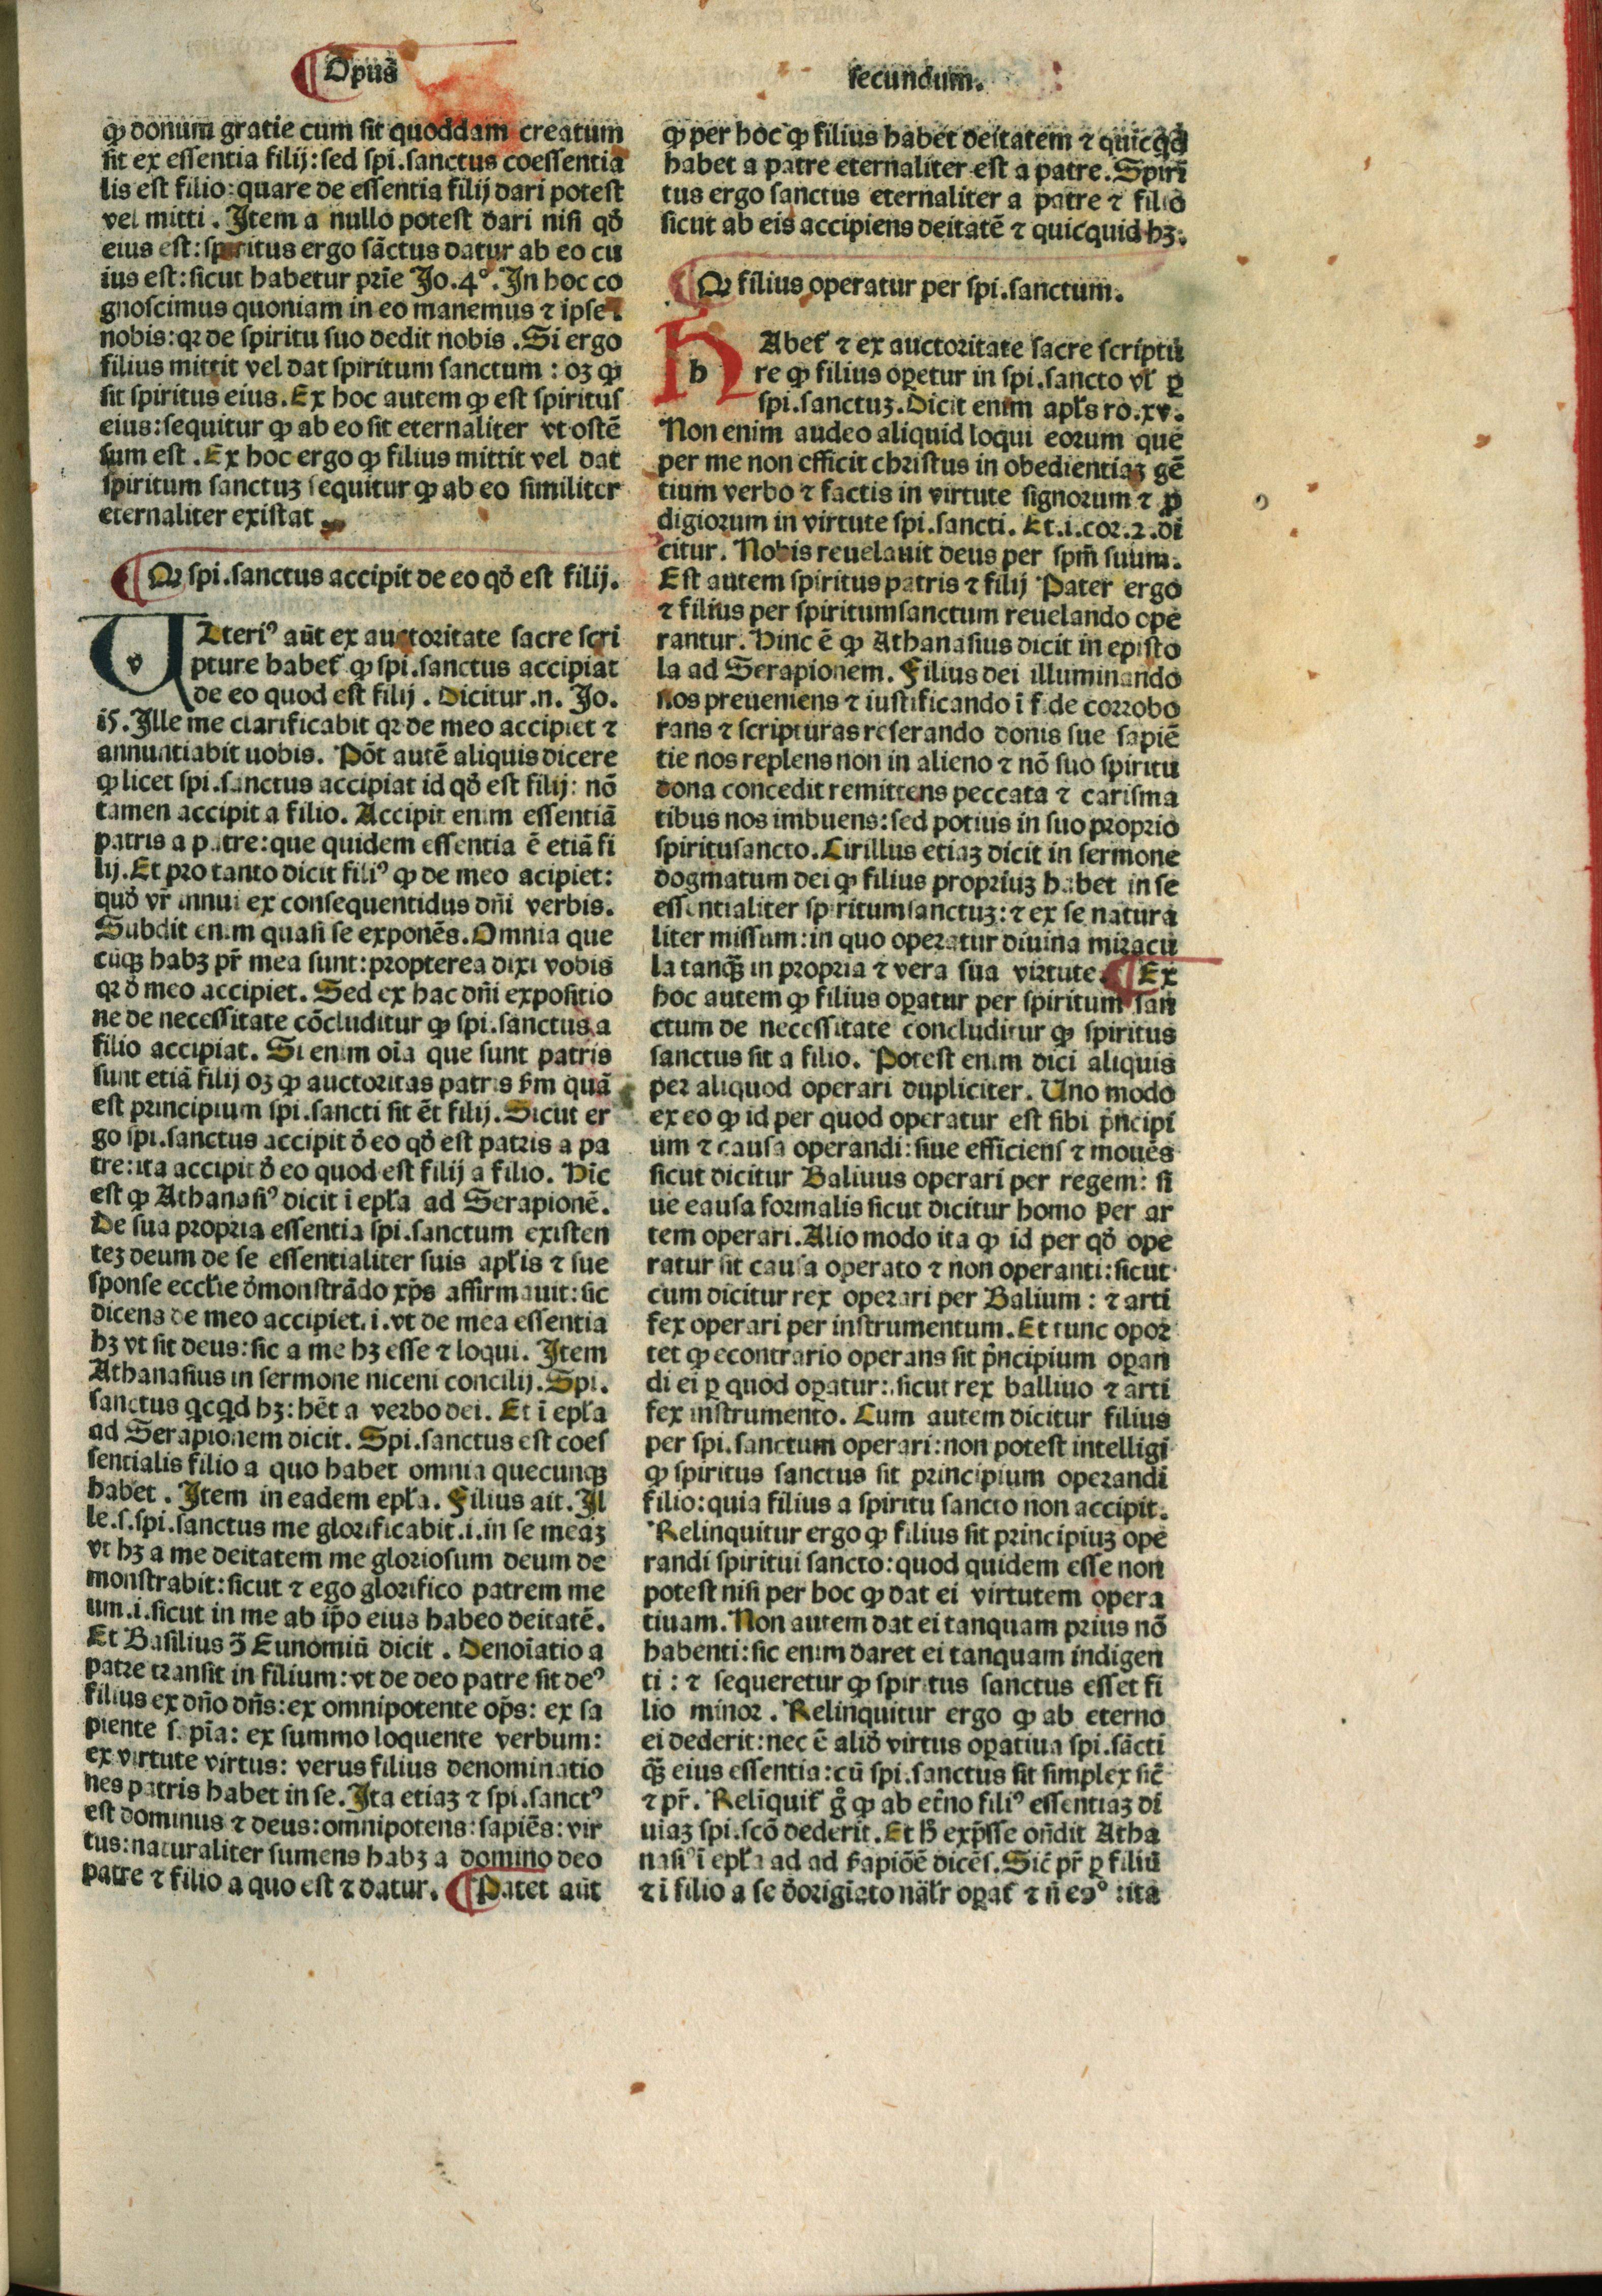 Opus secundum.
ꝙ donum gratie cum sit quoddam creatum
sit ex essentia filij: sed spi.sanctus coessentia
lis est filio: quare de essentia filij dari potest
vel mitti. Item a nullo potest dari nisi qđ
eius est: spiritus ergo sāctus datur ab eo cu
ius est: sicut habetur prīe Jo.4°. In hoc co
gnoscimus quoniam in eo manemus ⁊ ipse ī
nobis: qꝛ de spiritu suo dedit nobis. Si ergo
filius mittit vel dat spiritum sanctum: oꝫ ꝙ
sit spiritus eius. Ex hoc autem ꝙ est spiritus
eius: sequitur ꝙ ab eo sit eternaliter vt ostē
sum est. Ex hoc ergo ꝙ filius mittit vel dat
spiritum sanctuꝫ sequitur ꝙ ab eo similiter
eternaliter existat
¶ Qꝛ spi.sanctus accipit de eo qđ est filij.
vLteriꝰ aūt ex auctoritate sacre scri
pture habet̄ ꝙ spi.sanctus accipiat
de eo quod est filij. Dicitur.n. Jo.
i5. Ille me clarificabit qꝛ de meo accipiet ⁊
annuntiabit uobis. Pōt autē aliquis dicere
ꝙ licet spi.sanctus accipiat id qđ est filij: nō
tamen accipit a filio. Accipit enim essentiā
patris a patre: que quidem essentia ē etiā fi
lij. Et pro tanto dicit filiꝰ ꝙ de meo acipiet:
quđ vr̄ innui ex consequentidus dn̄i verbis.
Subdit enim quasi se exponēs. Omnia que
cūqꝫ habꝫ pr̄ mea sunt: propterea dixi vobis
qꝛ đ meo accipiet. Sed ex hac dn̄i expositio
ne de necessitate cōcluditur ꝙ spi.sanctus a
filio accipiat. Si enim oīa que sunt patris
sunt etiā filij oꝫ ꝙ auctoritas patris ẜm quā
est principium spi.sancti sit ēt filij. Sicut er
go spi.sanctus accipit đ eo qđ est patris a pa
tre: ita accipit đ eo quod est filij a filio. Hīc
est ꝙ Athanasiꝰ dicit ī epl̄a ad Serapionē.
De sua propria essentia spi.sanctum existen
teꝫ deum de se essentialiter suis apl̄is ⁊ sue
sponse eccl̄ie đmonstrādo xp̄s affirmauit: sic
dicens de meo accipiet.i.vt de mea essentia
hꝫ vt sit deus: sic a me hꝫ esse ⁊ loqui. Item
Athanasius in sermone niceni concilij. Spi.
sanctus qͥcqͥd hꝫ: hēt a verbo dei. Et ī epl̄a
ad Serapionem dicit. Spi.sanctus est coes
sentialis filio a quo habet omnia quecunqꝫ
habet. Item in eadem epl̄a. Filius ait. Il
le.s.spi.sanctus me glorificabit.i.in se meaꝫ
vt hꝫ a me deitatem me gloriosum deum de
monstrabit: sicut ⁊ ego glorifico patrem me
um.i.sicut in me ab ip̄o eius habeo deitatē.
Et Basilius ↄ̄ Eunomiū dicit. Denoīatio a
patre transit in filium: vt de deo patre sit deꝰ
filius ex dn̄o dn̄s: ex omnipotente op̄s: ex sa
piente sapīa: ex summo loquente verbum:
ex virtute virtus: verus filius denominatio
nes patris habet in se. Ita etiaꝫ ⁊ spi.sanctꝰ
est dominus ⁊ deus: omnipotens: sapiēs: vir
tus: naturaliter sumens habꝫ a domino deo
patre ⁊ filio a quo est ⁊ datur. ¶ Patet aūt
ꝙ per hoc ꝙ filius habet deitatem ⁊ quicqͥd
habet a patre eternaliter est a patre. Spiri
tus ergo sanctus eternaliter a patre ⁊ filio
sicut ab eis accipiens deitatē ⁊ quicquid hꝫ.
¶ Qꝛ filius operatur per spi.sanctum.
hAbet̄ ⁊ ex auctoritate sacre scriptu
re ꝙ filius oꝑetur in spi.sancto vl̄ ꝑ
spi.sanctuꝫ. Dicit enim apl̄s ro.xv.
Non enim audeo aliquid loqui eorum que
per me non efficit christus in obedientiaꝫ gē
tium verbo ⁊ factis in virtute signorum ⁊ ꝓ
digiorum in virtute spi.sancti. Et.i.cor.2.di
citur. Nobis reuelauit deus per spm̄ suum.
Est autem spiritus patris ⁊ filij Pater ergo
⁊ filius per spiritumsanctum reuelando ope
rantur. Hinc ē ꝙ Athanasius dicit in episto
la ad Serapionem. Filius dei illuminando
nos preueniens ⁊ iustificando ī fide corrobo
rans ⁊ scripturas reserando donis sue sapiē
tie nos replens non in alieno ⁊ nō suo spiritu
dona concedit remittens peccata ⁊ carisma
tibus nos imbuens: sed potius in suo proprio
spiritusancto. Cirillus etiaꝫ dicit in sermone
dogmatum dei ꝙ filius propriuꝫ habet in se
essentialiter spiritumsanctuꝫ: ⁊ ex se natura
liter missum: in quo operatur diuina miracu
la tanqꝫ̄ in propria ⁊ vera sua virtute. ¶ Ex
hoc autem ꝙ filius oꝑatur per spiritum san
ctum de necessitate concluditur ꝙ spiritus
sanctus sit a filio. Potest enim dici aliquis
per aliquod operari dupliciter. Uno modo
ex eo ꝙ id per quod operatur est sibi pͥncipi
um ⁊ causa operandi: siue efficiens ⁊ mouēs
sicut dicitur Baliuus operari per regem: si
ue eausa formalis sicut dicitur homo per ar
tem operari. Alio modo ita ꝙ id per qđ ope
ratur sit causa operato ⁊ non operanti: sicut
cum dicitur rex operari per Balium: ⁊ arti
fex operari per instrumentum. Et tunc opor
tet ꝙ econtrario operans sit pͥncipium oꝑan
di ei ꝑ quod oꝑatur: sicut rex balliuo ⁊ arti
fex instrumento. Cum autem dicitur filius
per spi.sanctum operari: non potest intelligi
ꝙ spiritus sanctus sit principium operandi
filio: quia filius a spiritu sancto non accipit.
Relinquitur ergo ꝙ filius sit principiuꝫ ope
randi spiritui sancto: quod quidem esse non
potest nisi per hoc ꝙ dat ei virtutem opera
tiuam. Non autem dat ei tanquam prius nō
habenti: sic enim daret ei tanquam indigen
ti: ⁊ sequeretur ꝙ spiritus sanctus esset fi
lio minor. Relinquitur ergo ꝙ ab eterno
ei dederit: nec ē aliđ virtus oꝑatiua spi.sācti
qꝫ̄ eius essentia: cū spi.sanctus sit simplex sic̄
⁊ pr̄. Relīquit̄ gͦ ꝙ ab et̄no filiꝰ essentiaꝫ di
uiaꝫ spi.scō dederit. Et ħ exp̄sse on̄dit Atha
nasiꝰ ī epl̄a ad ad ẜapiōē dicēs. Sic̄ pr̄ ꝑ filiū
⁊ ī filio a se đorigīato nāl̄r oꝑat̄ ⁊ n̄ eↄ°: ita